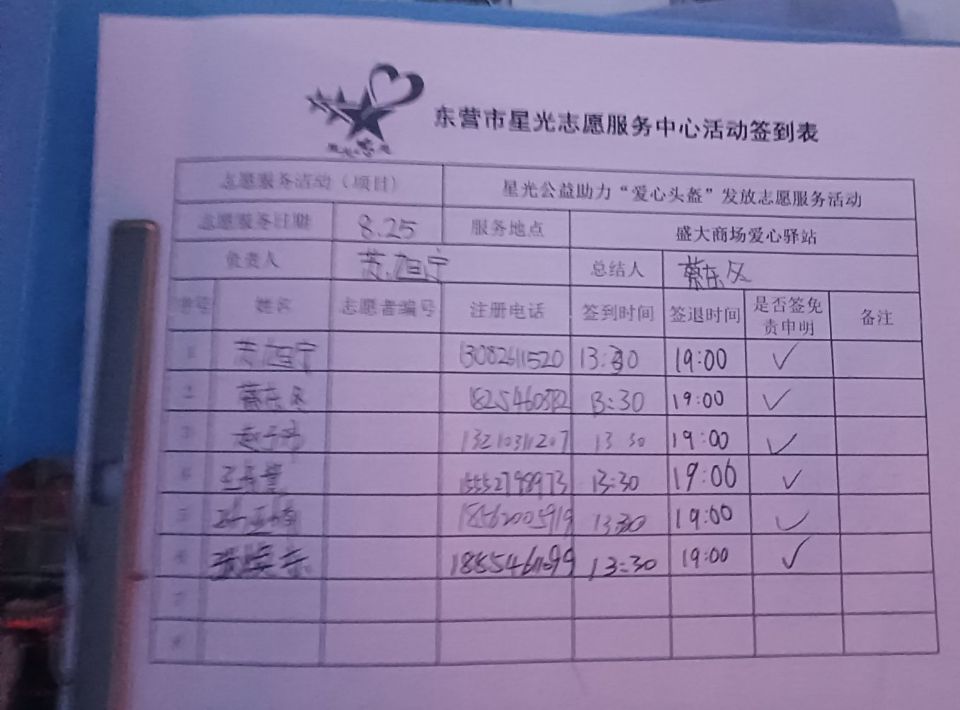 东营市星光志愿服务中心活动签到表
志愿服务活动（项目） 星光公益助力“爱心头盔”发放志愿服务活动
志愿服务日期 8.25 服务地点 盛大商场爱心驿站
负责人 总结人 蔡东冬
序号 姓名 志愿者编号 注册电话 签到时间 签退时间 是否签免责申明 备注
1 13082611520 13:30 19:00 ✓
2 蔡东冬 13:30 19:00 ✓
3 13210311207 13 30 19:00 ✓
4 15552798973 13:30 19:00 ✓
5 18562005919 13:30 19:00 ✓
6 13:30 19:00 ✓
7
8